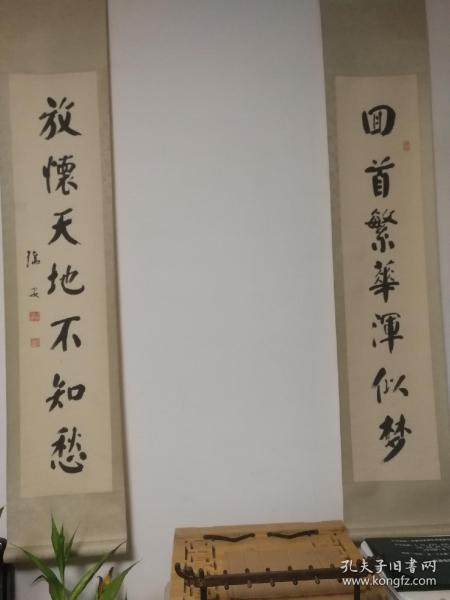 回首繁華渾似梦
放懷天地不知愁
孔夫子旧书网
www.kongfz.com